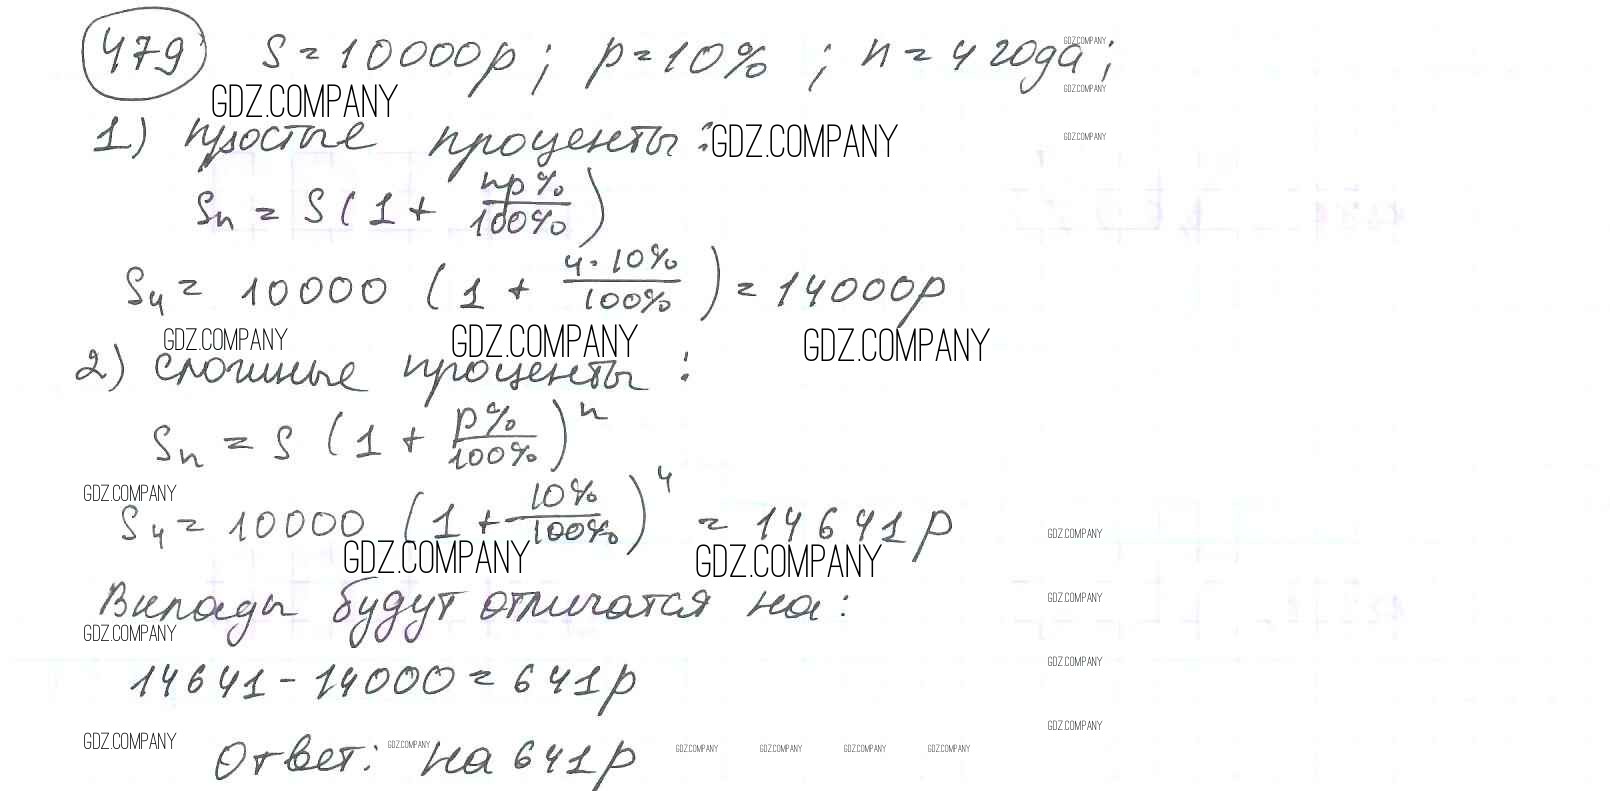 479 S = 10000р; p = 10%; n = 4 года;
GDZ.COMPANY
GDZ.COMPANY
GDZ.COMPANY
1) простые проценты: GDZ.COMPANY
GDZ.COMPANY
Sn = S(1 + np%/100%)
S4 = 10000 (1 + 4·10%/100%) = 14000р
GDZ.COMPANY GDZ.COMPANY GDZ.COMPANY
2) сложные проценты:
Sn = S (1 + p%/100%)^n
GDZ.COMPANY
S4 = 10000 (1 + 10%/100%)^4 = 14641р
GDZ.COMPANY
GDZ.COMPANY GDZ.COMPANY
Вклады будут отличатся на:
GDZ.COMPANY
GDZ.COMPANY
GDZ.COMPANY
14641 - 14000 = 641р
GDZ.COMPANY
GDZ.COMPANY GDZ.COMPANY GDZ.COMPANY GDZ.COMPANY GDZ.COMPANY GDZ.COMPANY
Ответ: на 641р